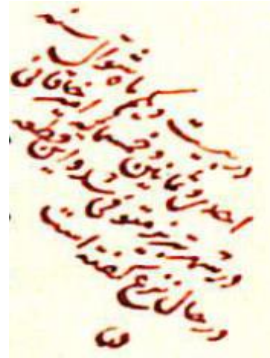 در بیست و یکم ماه شوال سنه
احدی و ثمانین و خمسمایه امیر خاقانی
در شهر تبریز متوفی شد و این قطعه
در حال نزع گفته است